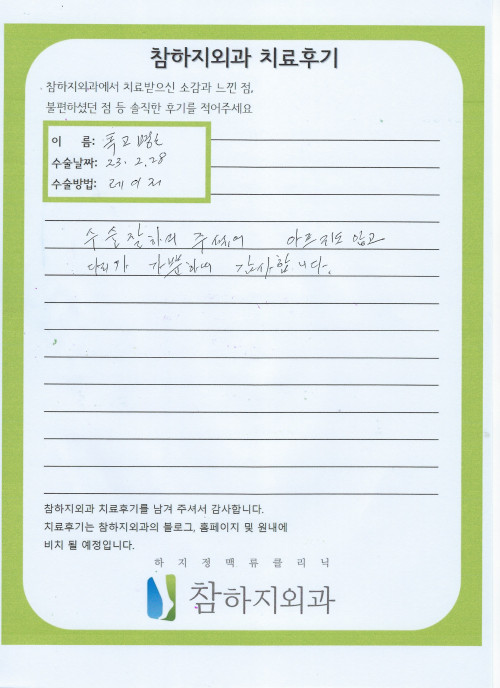 참하지외과 치료후기
참하지외과에서 치료받으신 소감과 느낀 점,
불편하셨던 점 등 솔직한 후기를 적어주세요
이 름:
수술날짜: 23. 2. 28
수술방법: 레이저
수술잘하여 주셔서 아프지도 않고
다리가 가뿐하여 감사합니다.
참하지외과 치료후기를 남겨 주셔서 감사합니다.
치료후기는 참하지외과의 블로그, 홈페이지 및 원내에
비치 될 예정입니다.
하지정맥류클리닉
참하지외과